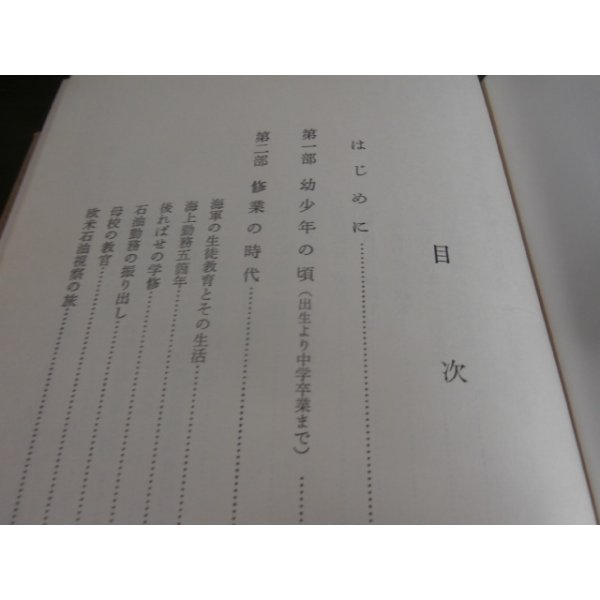 目次
はじめに
第一部 幼少年の頃(出生より中学卒業まで)
第二部 修業の時代
海軍の生徒教育とその生活
海上勤務五箇年
後ればせの学修
石油勤務の振り出し
母校の教官
欧米石油視察の旅